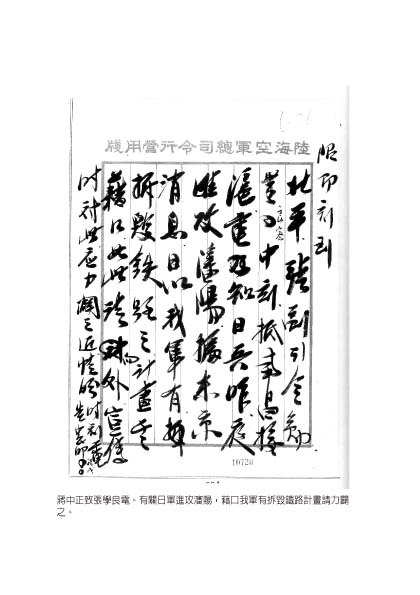 陸海空軍總司令行營用牋
限即刻到
北平張副司令勛
密中刻抵南昌接
滬電知日兵昨夜
進攻瀋陽據東京
消息日以我軍有
拆毀鐵路之計畫其
藉口如此請對外宣傳
時對此應力闢之近情盼時刻電
10720
蔣中正致張學良電。有關日軍進攻瀋陽，藉口我軍有拆毀鐵路計畫請力闢
之。